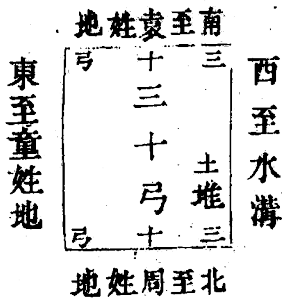 南至袁姓地
西至水溝
三十弓
三十弓
土堆
三十弓
東至童姓地
北至周姓地